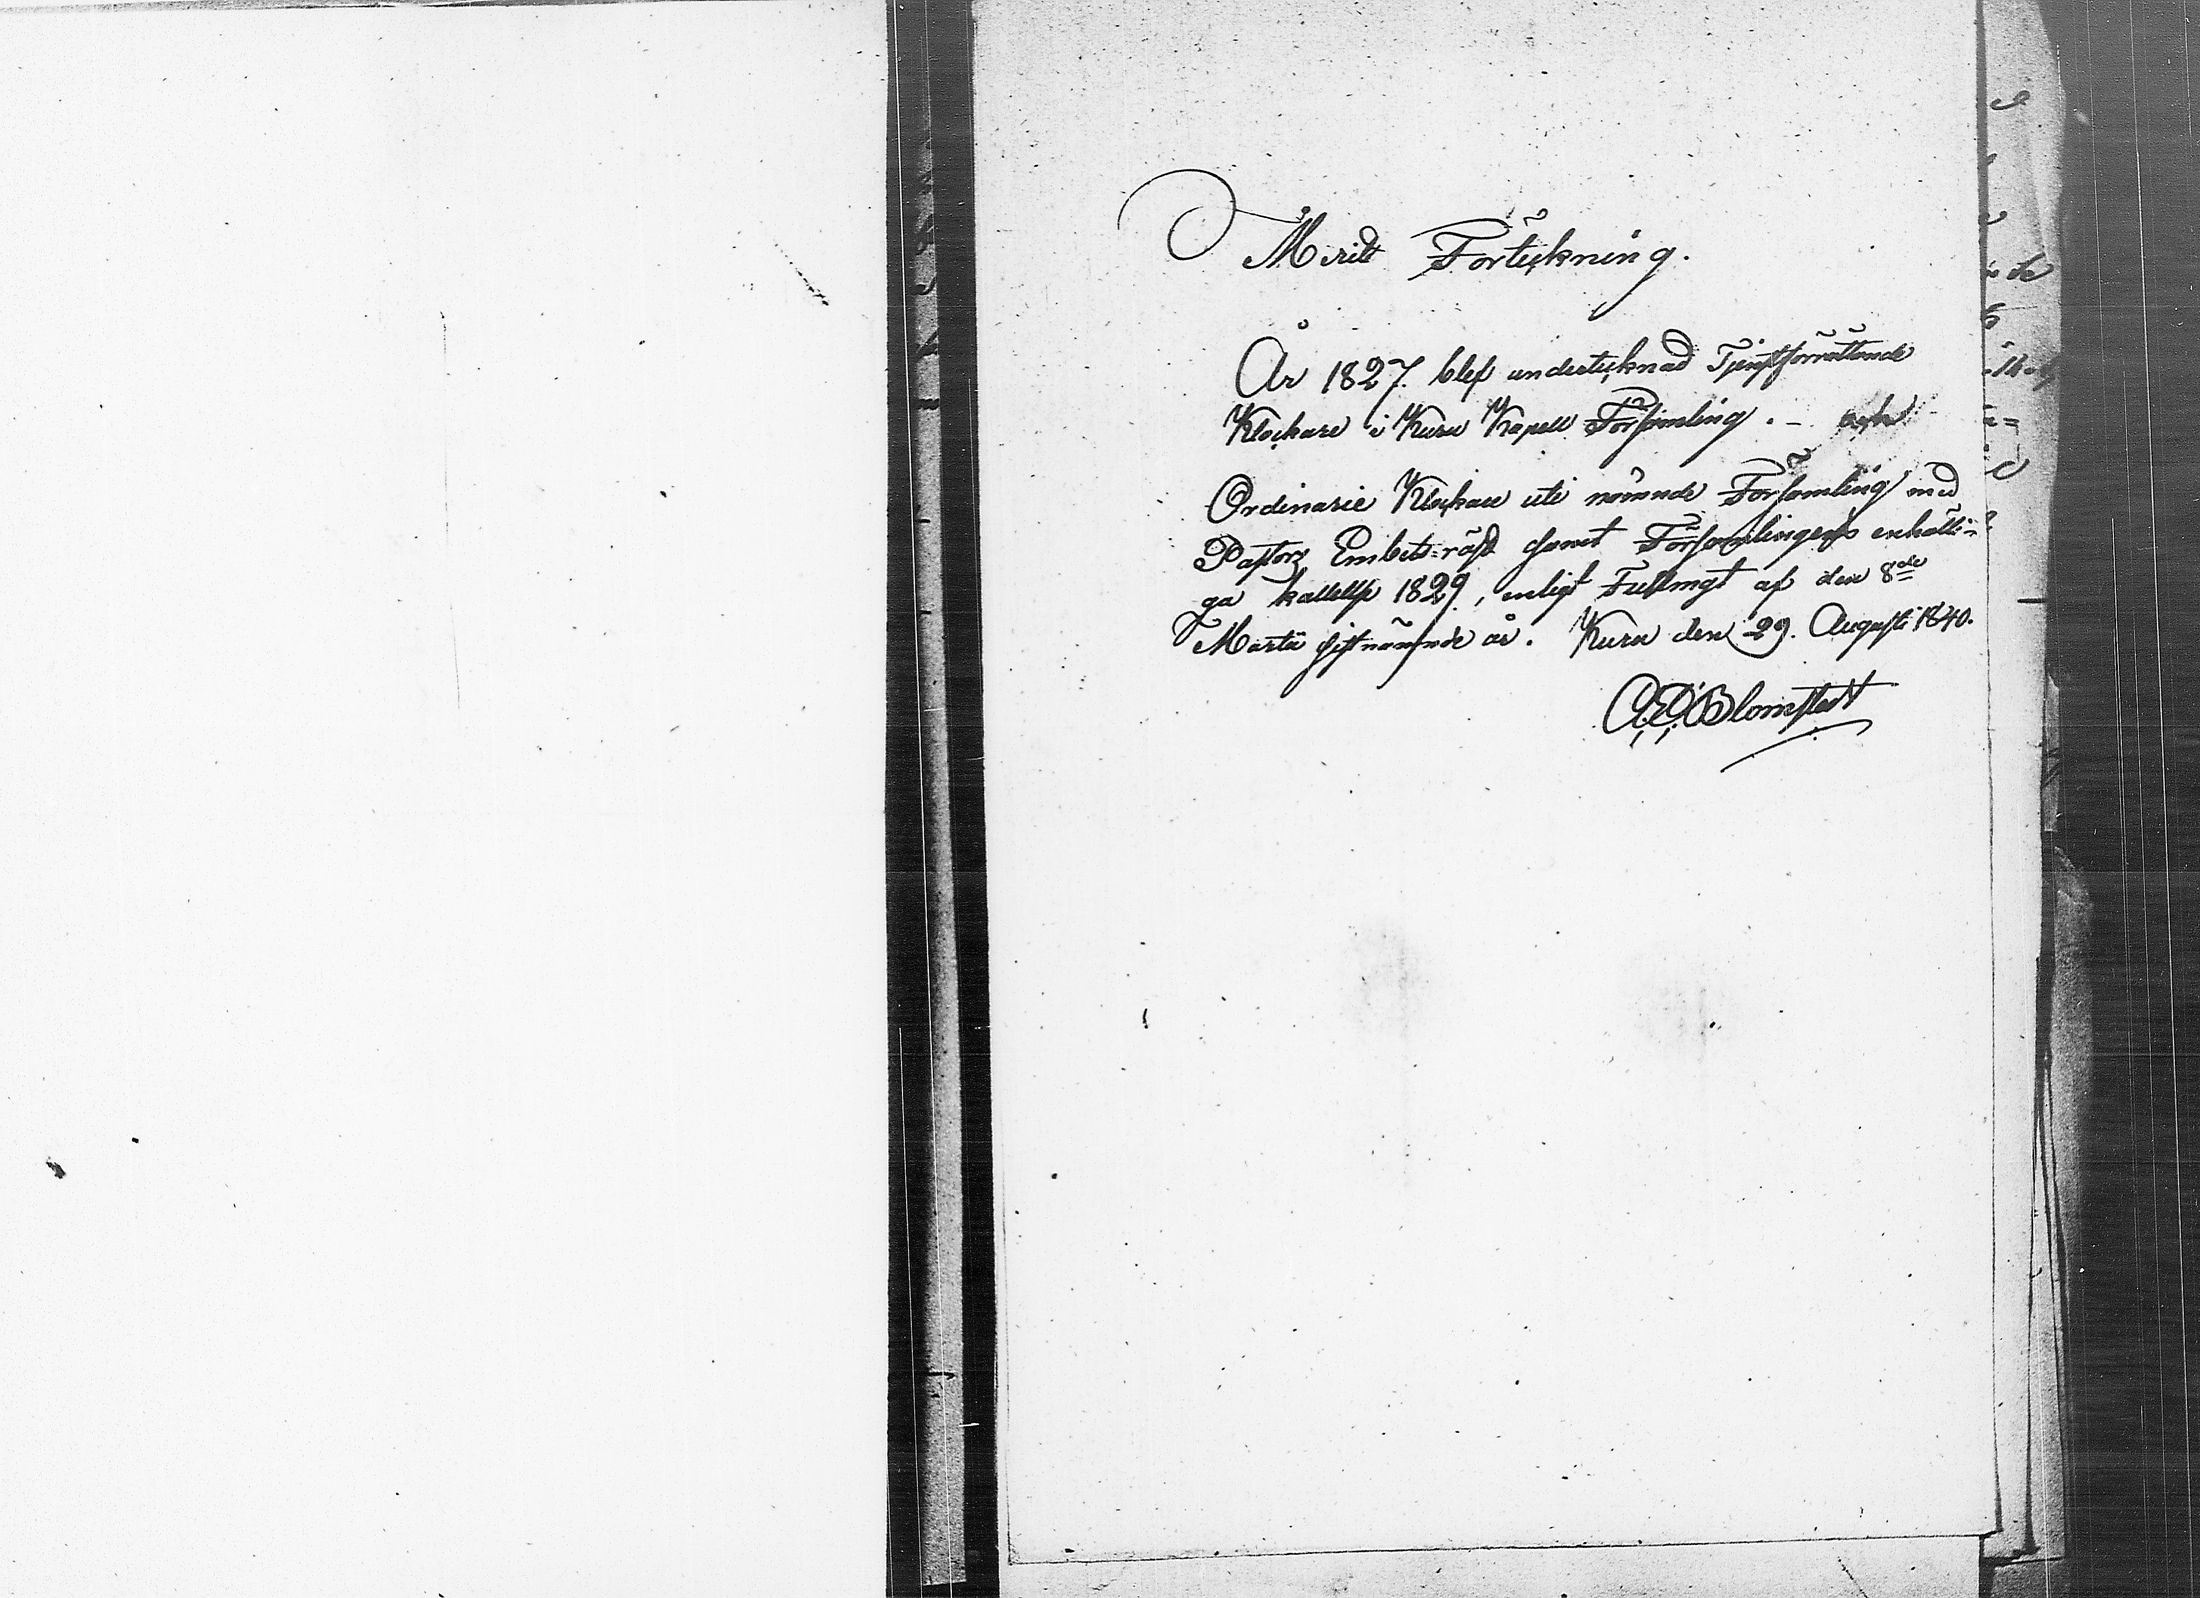 Merit Förteckning.
År 1827. blef undertecknad Tjenstförrättande
Klockare i Kuru Kapell Församling. - och
Ordinarie Klockare uti nämnde Församling med
Pastors Embets-röst samt Församlingens enhälli-
ga kallelse 1829, enligt Fullmagt af den 8de
Martii sistnämnde år. Kuru den 29. Augusti 1840.
A. E. Blomstedt